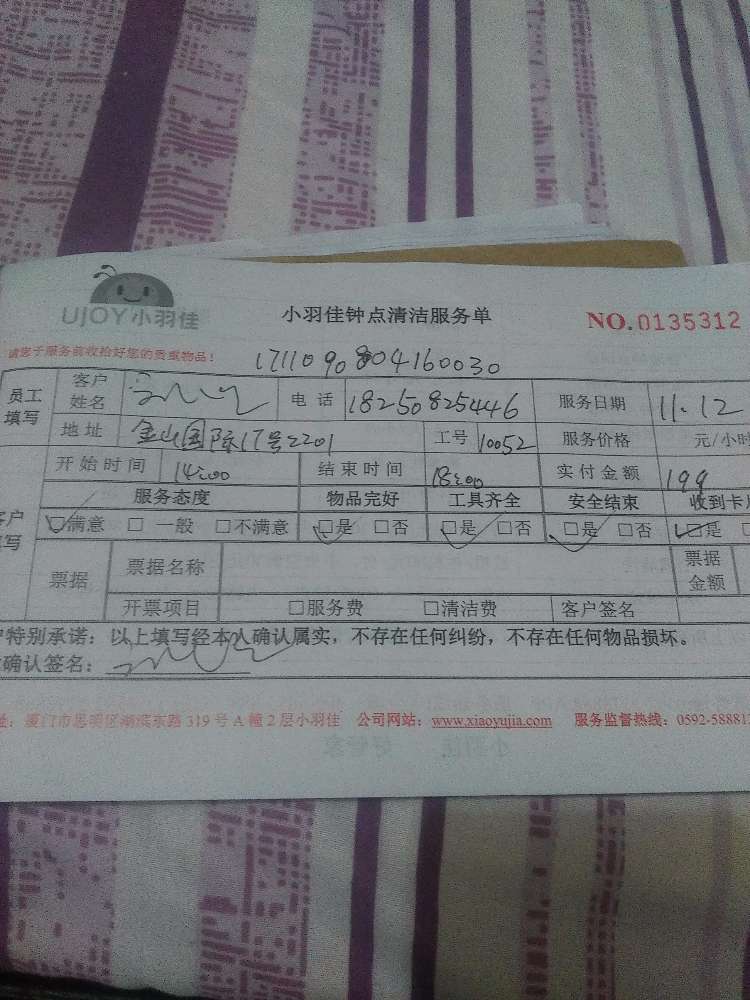 UJOY小羽佳
小羽佳钟点清洁服务单
NO.0135312
请您于服务前收拾好您的贵重物品!
1711090804160030
员工填写 客户姓名 电话 18250825446 服务日期 11.12
地址 金山国际17号2201 工号 10052 服务价格 元/小时
开始时间 14:00 结束时间 18:00 实付金额 199
服务态度 物品完好 工具齐全 安全结束 收到卡
☑满意 □一般 □不满意 ☑是 □否 ☑是 □否 ☑是 □否 ☑是 □
票据 票据名称 票据金额
开票项目 □服务费 □清洁费 客户签名
特别承诺:以上填写经本人确认属实,不存在任何纠纷,不存在任何物品损坏。
确认签名:
址:厦门市思明区湖滨东路319号A幢2层小羽佳 公司网站:www.xiaoyujia.com 服务监督热线:0592-58881